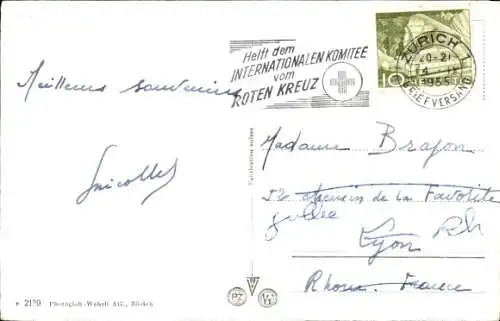 Helft dem
INTERNATIONALEN KOMITEE
vom
ROTEN KREUZ
ZÜRICH
20-21
1955
BRIEFVERSAND
10
Meilleurs souvenirs
Nicolle
Madame Brajon
52 chemin de la Favorite
Lyon Rh
Rhone. France
PZ
2179 Photoglob-Wehrli AG., Zürich